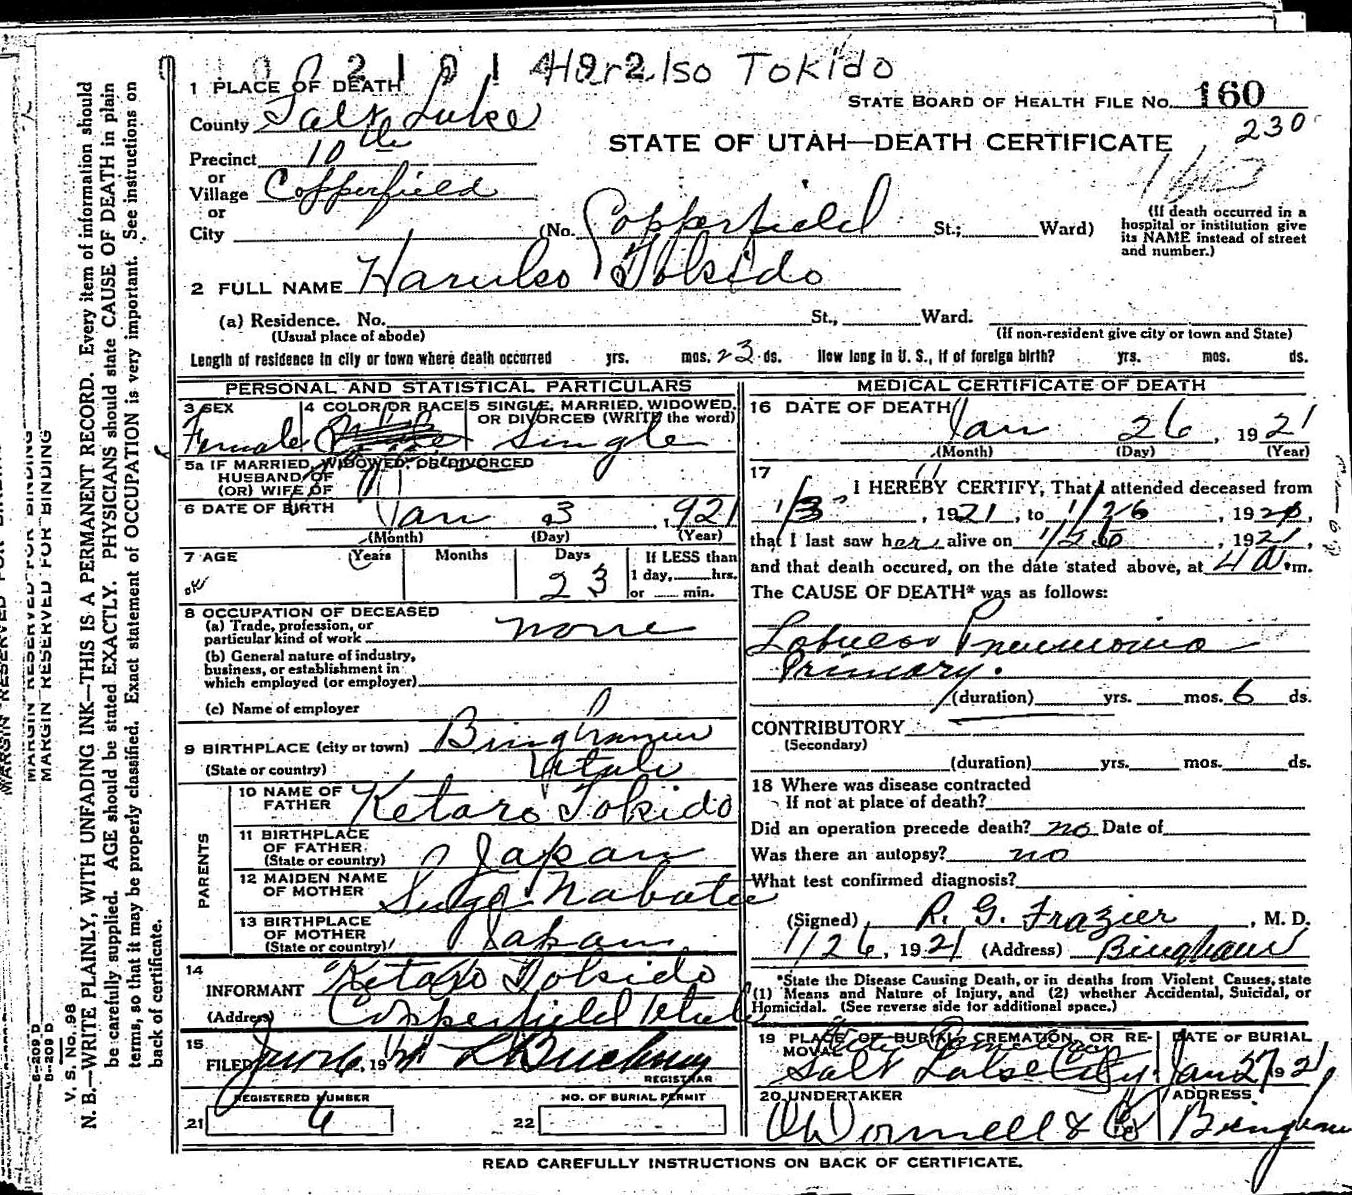 2101492 Harulso Tokido
1 PLACE OF DEATH
County Salt Lake
STATE BOARD OF HEALTH FILE No. 160
230
STATE OF UTAH—DEATH CERTIFICATE
Precinct 10th
or
Village Copperfield
or
City (No. Copperfield St.; Ward)
(If death occurred in a
hospital or institution give
its NAME instead of street
and number.)
2 FULL NAME Harulso Tokido
(a) Residence. No. St., Ward.
(Usual place of abode) (If non-resident give city or town and State)
Length of residence in city or town where death occurred yrs. mos. 23 ds. How long in U. S., if of foreign birth? yrs. mos. ds.
PERSONAL AND STATISTICAL PARTICULARS
3 SEX 4 COLOR OR RACE 5 SINGLE, MARRIED, WIDOWED
OR DIVORCED (WRITE the word)
Female Single
5a IF MARRIED, WIDOWED, OR DIVORCED
HUSBAND OF
(OR) WIFE OF
6 DATE OF BIRTH Jan 3, 1921
(Month) (Day) (Year)
7 AGE Years Months Days If LESS than
23 1 day, hrs.
or min.
8 OCCUPATION OF DECEASED
(a) Trade, profession, or
particular kind of work none
(b) General nature of industry,
business, or establishment in
which employed (or employer)
(c) Name of employer
9 BIRTHPLACE (city or town) Bingham
(State or country) Utah
PARENTS
10 NAME OF
FATHER Ketaro Tokido
11 BIRTHPLACE
OF FATHER
(State or country) Japan
12 MAIDEN NAME
OF MOTHER Suga Nabata
13 BIRTHPLACE
OF MOTHER
(State or country) Japan
14
INFORMANT Ketaro Tokido
(Address) Copperfield Utah
15
FILED 19 Buckney
REGISTRAR
REGISTERED NUMBER NO. OF BURIAL PERMIT
21 6 22
MEDICAL CERTIFICATE OF DEATH
16 DATE OF DEATH
Jan 26, 1921
(Month) (Day) (Year)
17
I HEREBY CERTIFY, That I attended deceased from
1/3, 1921, to 1/26, 1921,
that I last saw her alive on 1/26, 1921,
and that death occured, on the date stated above, at 4 A.m.
The CAUSE OF DEATH* was as follows:
Lobular Pneumonia
Primary.
(duration) yrs. mos. 6 ds.
CONTRIBUTORY
(Secondary)
(duration) yrs. mos. ds.
18 Where was disease contracted
If not at place of death?
Did an operation precede death? no Date of
Was there an autopsy? no
What test confirmed diagnosis?
(Signed) R. G. Frazier, M. D.
1/26, 1921 (Address) Bingham
*State the Disease Causing Death, or in deaths from Violent Causes, state
(1) Means and Nature of Injury, and (2) whether Accidental, Suicidal, or
Homicidal. (See reverse side for additional space.)
19 PLACE OF BURIAL, CREMATION, OR RE-
MOVAL DATE OF BURIAL
City Cemetery
Salt Lake City. Jan 27 1921
20 UNDERTAKER ADDRESS
O'Donnell & Co Bingham
READ CAREFULLY INSTRUCTIONS ON BACK OF CERTIFICATE.
N. B.—WRITE PLAINLY, WITH UNFADING INK—THIS IS A PERMANENT RECORD. Every item of information should
be carefully supplied. AGE should be stated EXACTLY. PHYSICIANS should state CAUSE OF DEATH in plain
terms, so that it may be properly classified. Exact statement of OCCUPATION is very important. See instructions on
back of certificate.
V. S. No. 98
S-209 D
S-209 D
MARGIN RESERVED FOR BINDING
MARGIN RESERVED FOR BINDING